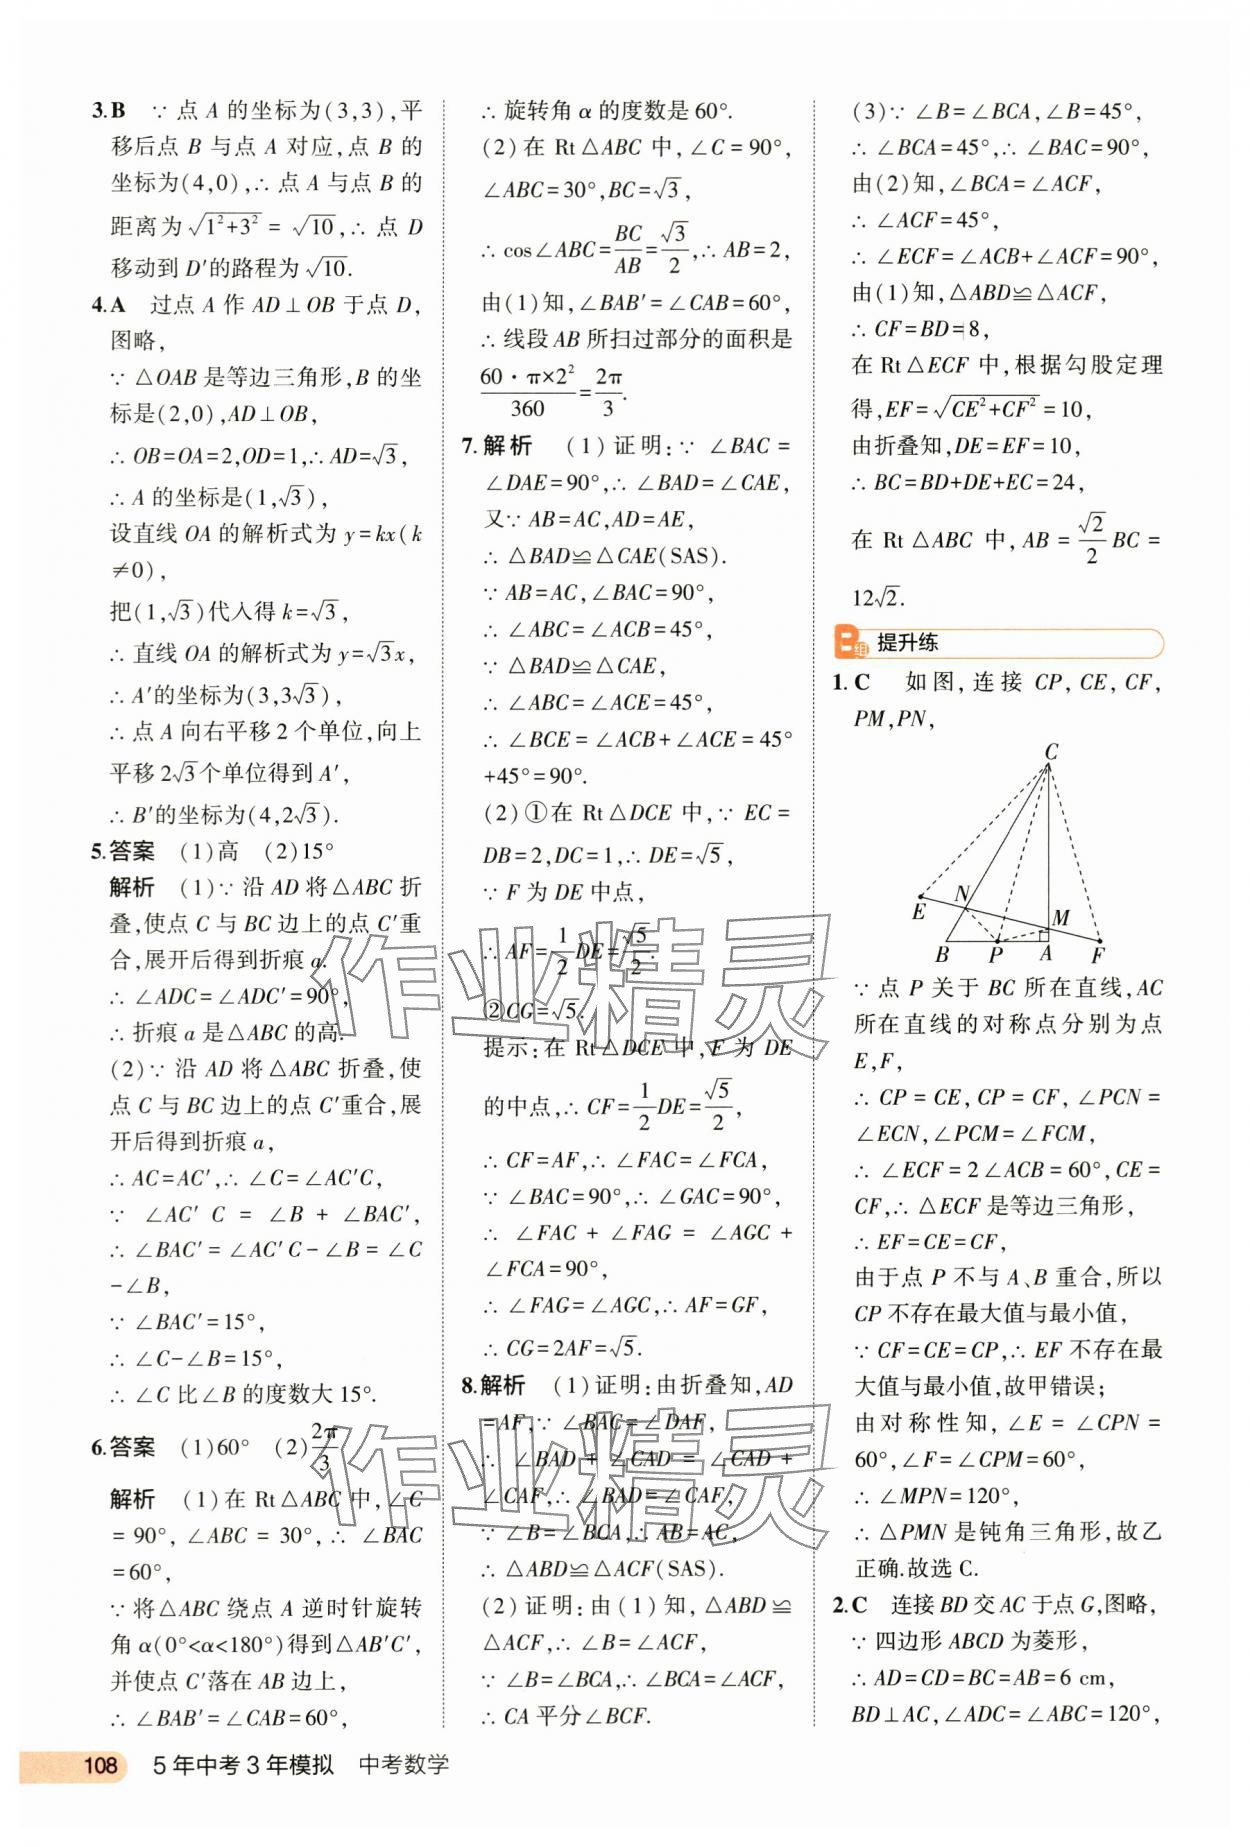 3.B ∵ 点 A 的坐标为(3,3),平
移后点 B 与点 A 对应,点 B 的
坐标为(4,0),∴ 点 A 与点 B 的
距离为√(1²+3²) = √10,∴ 点 D
移动到 D′的路程为√10.
4.A 过点 A 作 AD⊥OB 于点 D,
图略,
∵ △OAB 是等边三角形,B 的坐
标是(2,0),AD⊥OB,
∴ OB=OA=2,OD=1,∴ AD=√3,
∴ A 的坐标是(1,√3),
设直线 OA 的解析式为 y=kx(k
≠0),
把(1,√3)代入得 k=√3,
∴ 直线 OA 的解析式为 y=√3x,
∴ A′的坐标为(3,3√3),
∴ 点 A 向右平移 2 个单位,向上
平移 2√3个单位得到 A′,
∴ B′的坐标为(4,2√3).
5.答案 (1)高 (2)15°
解析 (1)∵ 沿 AD 将△ABC 折
叠,使点 C 与 BC 边上的点 C′重
合,展开后得到折痕 a.
∴ ∠ADC=∠ADC′=90°,
∴ 折痕 a 是△ABC 的高.
(2)∵ 沿 AD 将△ABC 折叠,使
点 C 与 BC 边上的点 C′重合,展
开后得到折痕 a,
∴ AC=AC′,∴ ∠C=∠AC′C,
∵ ∠AC′C = ∠B + ∠BAC′,
∴ ∠BAC′=∠AC′C-∠B=∠C
-∠B,
∵ ∠BAC′=15°,
∴ ∠C-∠B=15°,
∴ ∠C 比∠B 的度数大 15°.
6.答案 (1)60° (2)2π/3
解析 (1)在 Rt△ABC 中,∠C
= 90°, ∠ABC = 30°, ∴ ∠BAC
=60°,
∵ 将△ABC 绕点 A 逆时针旋转
角 α(0°<α<180°)得到△AB′C′,
并使点 C′落在 AB 边上,
∴ ∠BAB′=∠CAB=60°,
∴ 旋转角 α 的度数是 60°.
(2)在 Rt△ABC 中,∠C=90°,
∠ABC=30°,BC=√3,
∴ cos∠ABC=BC/AB=√3/2,∴ AB=2,
由(1)知,∠BAB′=∠CAB=60°,
∴ 线段 AB 所扫过部分的面积是
60·π×2²/360=2π/3.
7.解析 (1)证明:∵ ∠BAC =
∠DAE=90°,∴ ∠BAD=∠CAE,
又∵ AB=AC,AD=AE,
∴ △BAD≌△CAE(SAS).
∵ AB=AC,∠BAC=90°,
∴ ∠ABC=∠ACB=45°,
∵ △BAD≌△CAE,
∴ ∠ABC=∠ACE=45°,
∴ ∠BCE=∠ACB+∠ACE=45°
+45°=90°.
(2)①在 Rt△DCE 中,∵ EC=
DB=2,DC=1,∴ DE=√5,
∵ F 为 DE 中点,
∴ AF=1/2DE=√5/2.
②CG=√5.
提示:在 Rt△DCE 中,F 为 DE
的中点,∴ CF=1/2DE=√5/2,
∴ CF=AF,∴ ∠FAC=∠FCA,
∵ ∠BAC=90°,∴ ∠GAC=90°,
∴ ∠FAC + ∠FAG = ∠AGC +
∠FCA=90°,
∴ ∠FAG=∠AGC,∴ AF=GF,
∴ CG=2AF=√5.
8.解析 (1)证明:由折叠知,AD
=AF,∵ ∠BAC=∠DAF,
∴ ∠BAD + ∠CAD = ∠CAD +
∠CAF,∴ ∠BAD=∠CAF,
∵ ∠B=∠BCA,∴ AB=AC,
∴ △ABD≌△ACF(SAS).
(2)证明:由(1)知,△ABD≌
△ACF,∴ ∠B=∠ACF,
∵ ∠B=∠BCA,∴ ∠BCA=∠ACF,
∴ CA 平分∠BCF.
(3)∵ ∠B=∠BCA,∠B=45°,
∴ ∠BCA=45°,∴ ∠BAC=90°,
由(2)知,∠BCA=∠ACF,
∴ ∠ACF=45°,
∴ ∠ECF=∠ACB+∠ACF=90°,
由(1)知,△ABD≌△ACF,
∴ CF=BD=8,
在 Rt△ECF 中,根据勾股定理
得,EF=√(CE²+CF²)=10,
由折叠知,DE=EF=10,
∴ BC=BD+DE+EC=24,
在 Rt△ABC 中,AB=√2/2 BC=
12√2.
B组 提升练
1.C 如图,连接 CP,CE,CF,
PM,PN,
C
E
N
M
B
P
A
F
∵ 点 P 关于 BC 所在直线,AC
所在直线的对称点分别为点
E,F,
∴ CP = CE, CP = CF, ∠PCN =
∠ECN,∠PCM=∠FCM,
∴ ∠ECF=2∠ACB=60°,CE=
CF,∴ △ECF 是等边三角形,
∴ EF=CE=CF,
由于点 P 不与 A、B 重合,所以
CP 不存在最大值与最小值,
∵ CF=CE=CP,∴ EF 不存在最
大值与最小值,故甲错误;
由对称性知,∠E=∠CPN=
60°,∠F=∠CPM=60°,
∴ ∠MPN=120°,
∴ △PMN 是钝角三角形,故乙
正确.故选 C.
2.C 连接 BD 交 AC 于点 G,图略,
∵ 四边形 ABCD 为菱形,
∴ AD=CD=BC=AB=6 cm,
BD⊥AC,∠ADC=∠ABC=120°,
作业精灵
作业精灵
108 5 年中考 3 年模拟 中考数学